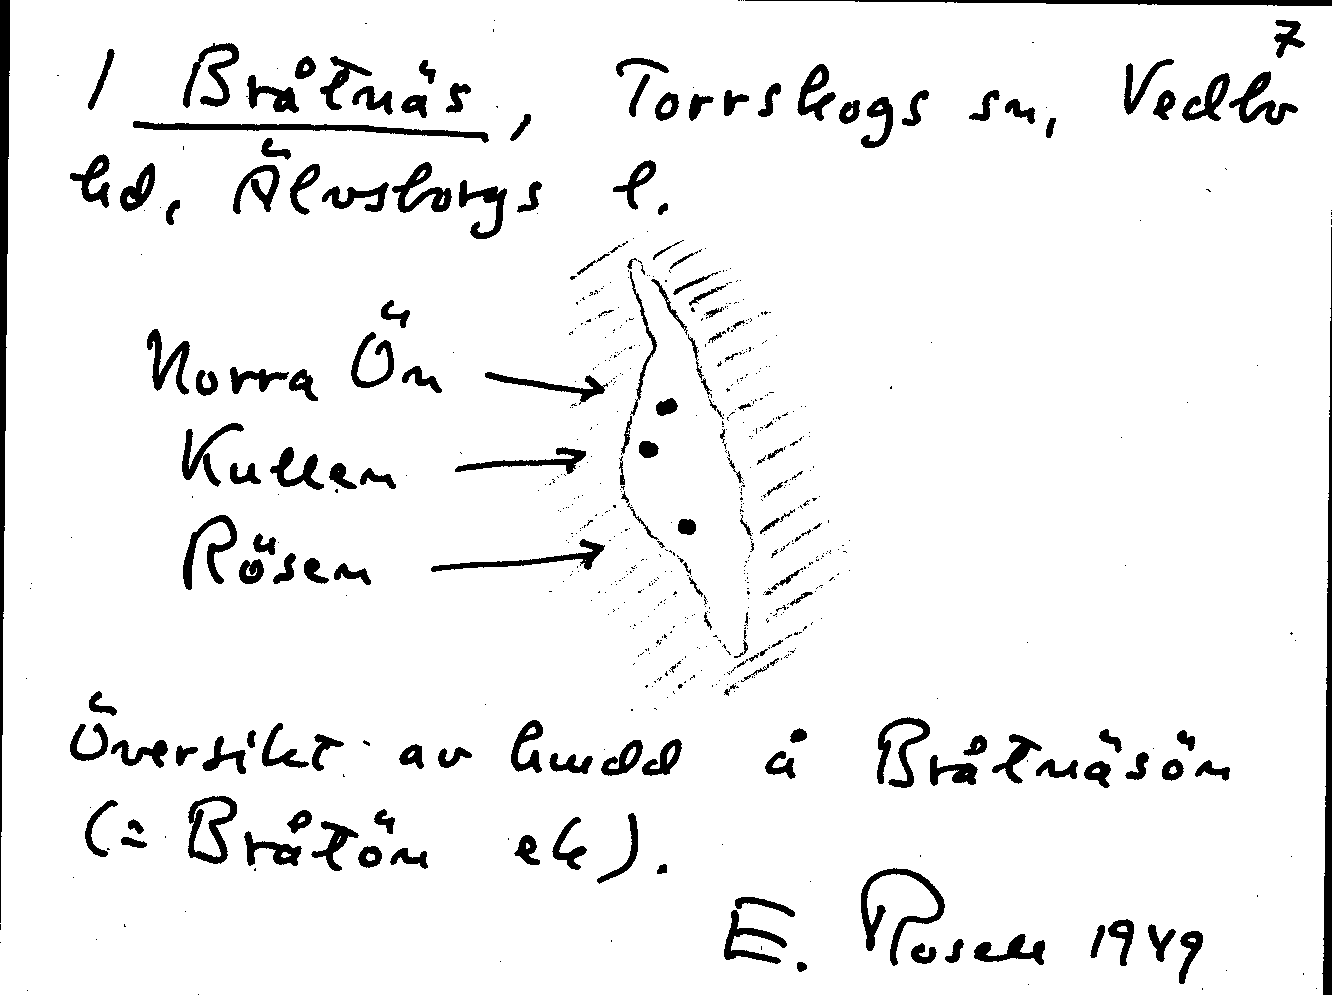 7
1 Bråtnäs, Torrskogs sn, Vedbo
hd, Älvsborgs l.
Norra Ön
Kullen
Rösen
Översikt av hmdd å Bråtnäsön
(= Bråtön ek).
E. Rosell 1949